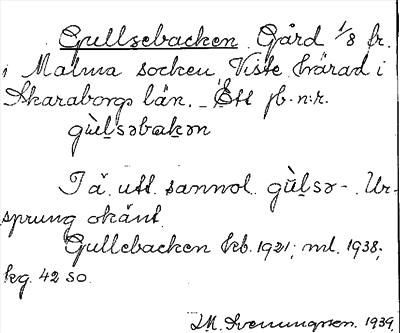 Gullsebacken. Gård 1/8 fr.
i Malma socken, Viste härad i
Skaraborgs län. – Ett jb-n:r.
gùl̠səbakən
I ä. utt. sannol. gù̄l̠sə-. Ur-
sprung okänt.
Gullebacken kb. 1921; ml. 1938;
kg. 42 so.
1939